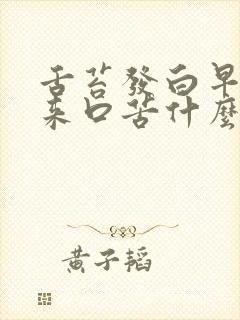 舌苔發白早
來口苦什麼
黃子韜